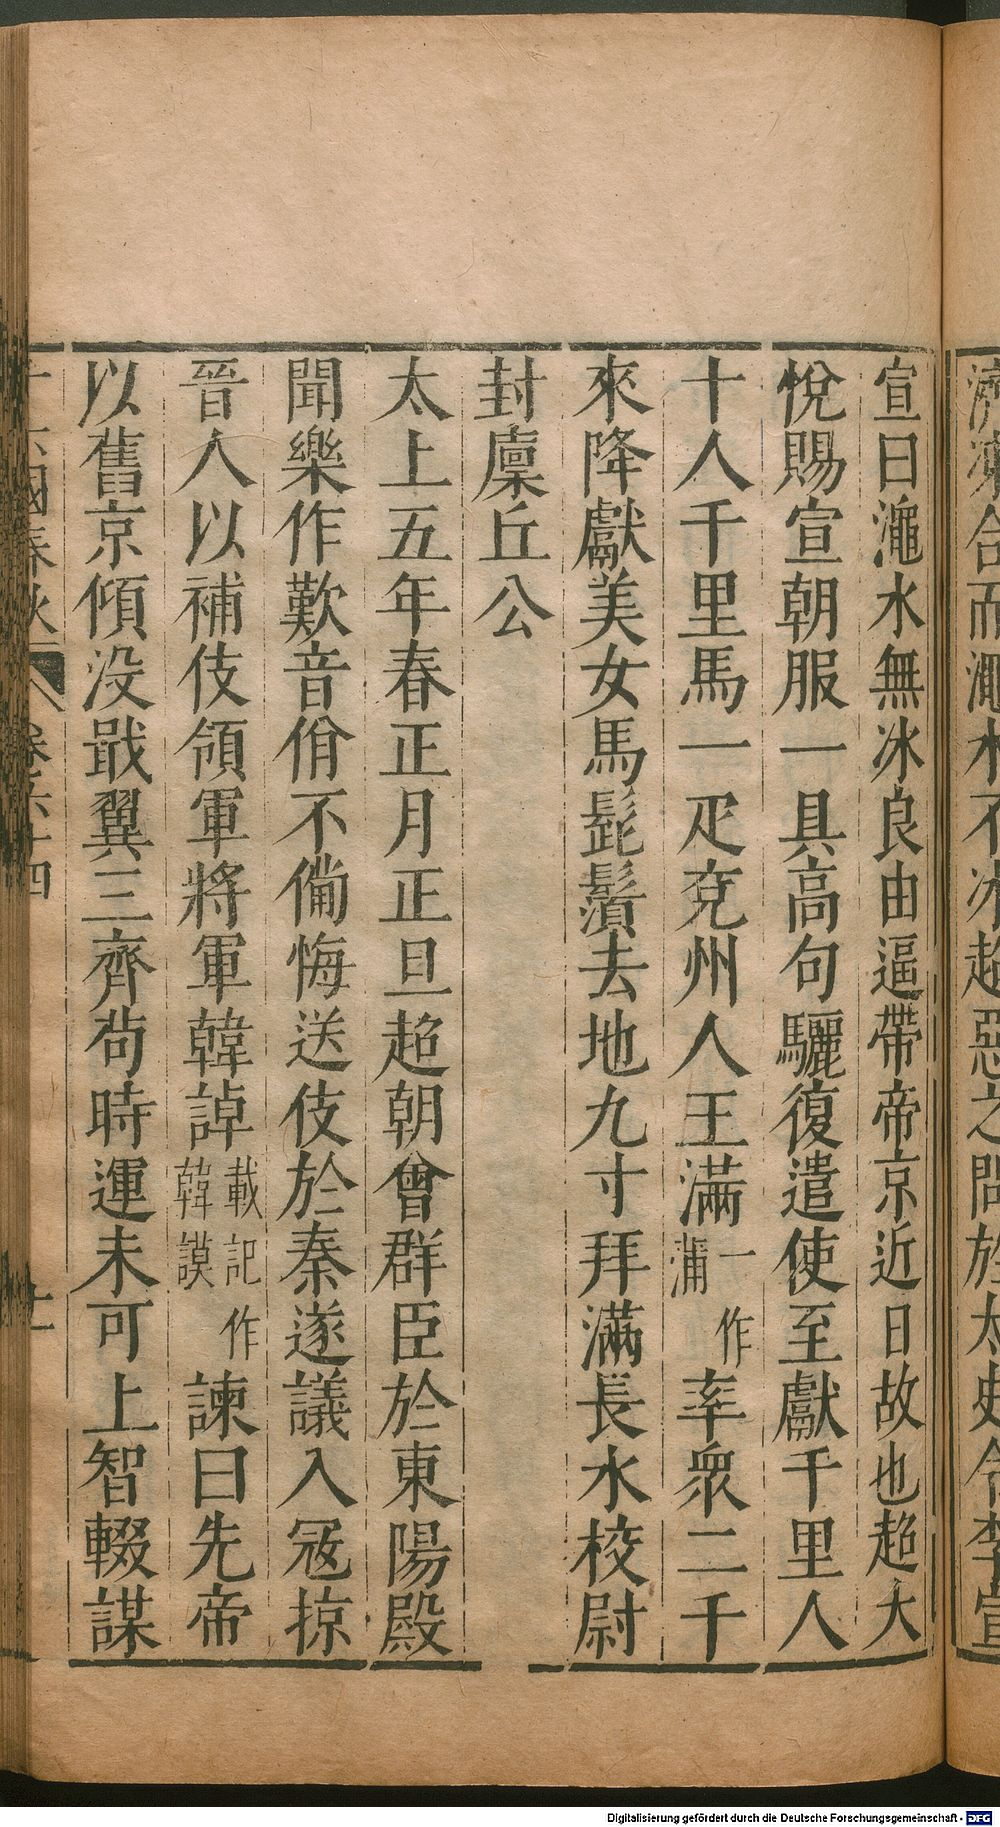 濟凍合而澠水不冰超惡之問於太史令李宣
宣曰澠水無冰良由逼帶帝京近日故也超大
悅賜宣朝服一具高句驪復遣使至獻千里人
十人千里馬一疋兗州人王滿一作蒲率衆二千
來降獻美女馬髭鬚去地九寸拜滿長水校尉
封廩丘公
太上五年春正月正旦超朝會群臣於東陽殿
聞樂作歎音佾不備悔送伎於秦遂議入寇掠
晉人以補伎領軍將軍韓𧨳載記作韓謨諫曰先帝
以舊京傾没戢翼三齊苟時運未可上智輟謀
十六國春秋 卷六十四 十一
Digitalisierung gefördert durch die Deutsche Forschungsgemeinschaft - DFG